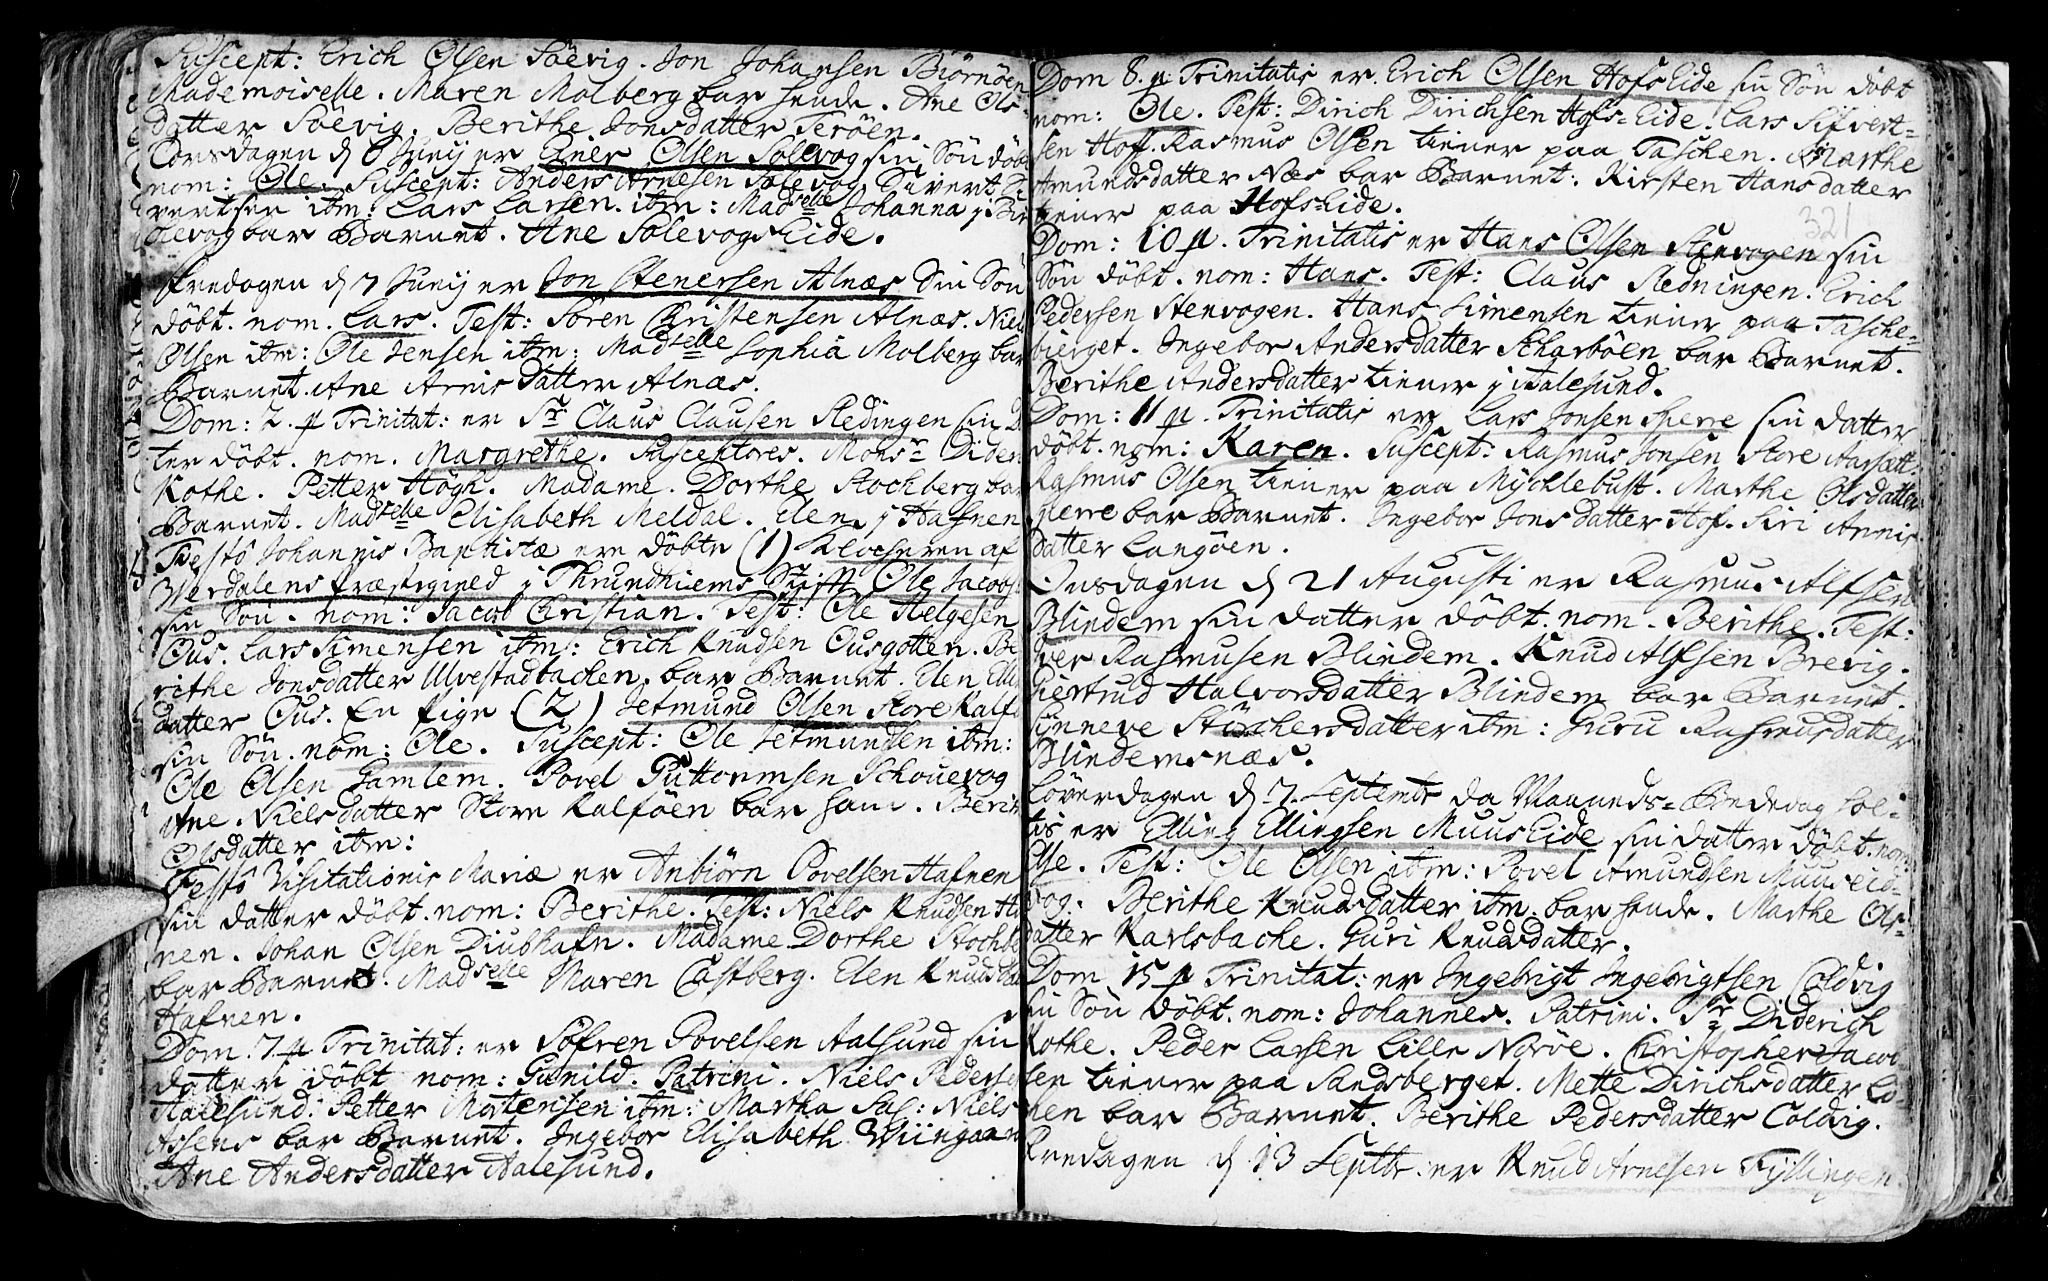 Suscept: Erich Olsen Söevig. Jon Johansen Biörnöen
Mademoiselle. Maren Molberg bar hende. Ane Ols-
datter Söevig. Berithe Jonsdatter Teröen.
Torsdagen d 6 Junij er Einer Olsen Solevog sin Sön döbt
nom: Ole. Suscept: Anders Arnesen Solevog Sivert Si
vertsen ibm: Lars Larsen. ibm: Madselle Johanna
olevog bar Barnet. Ane SolevogsEide.
Fredagen d 7 Junij er Jon Stenersen Alnæs Sin Sön
döbt. nom. Lars. Test: Sören Christensen Alnæs. Niels
Olsen ibm: Ole Jensen ibm: Madselle Sophia Molberg bar
Barnet. Ane Arnisdatter Alnæs.
Dom: 2. p Trinitat: er Sr Claus Clausen Stedingen sin D
ter döbt. nom. Margrethe. Susceptores. Monsr Dider
Kothe. Petter Högh. Madame. Dorthe Stochberg bar
Barnet. Madselle Elisabeth Meldal. Elen j Hafnen
Festô Johannis Baptistæ ere döbte (1) Klocheren af
Werdalens Præstegield j Thrundhiems Stift Ole Jacobs
sin Sön. nom: Jacob Christian. Test: Ole Helgesen
Ous. Lars Simensen ibm: Erich Knudsen Ousgotten. Be
rithe Jonsdatter Ulvestadbachen. bar Barnet. Elen
datter Ous. En Pige (2) Jetmund Olsen Store Kalf
sin Sön. nom: Ole. Suscept: Ole Jetmundsen ibm:
Ole Olsen Gamlem. Povel Puttormsen Schouevog
Ane Nielsdatter Store Kalföen bar ham. Berit
Olsdatter ibm:
Festô Visitationis Mariæ er Anbiörn Povelsen Hafnen
sin datter döbt. nom: Berithe. Test: Niels Knudsen Ha
nen. Johan Olsen Diubhafn. Madame Dorthe Stochbe
bar Barnet. Madselle Maren Castberg. Elen Knuds
Hafnen.
Dom: 7 p Trinitat: er Söfren Povelsen Aalsund sin
datter döbt nom: Gunild. Patrini. Niels Peders
Aalesund. Petter Mortensen ibm: Martha Sal: Niels
Assens bar Barnet. Ingebor Elisabeth Wiingaar
Ane Andersdatter Aalesund.
Dom 8. p. Trinitatis er. Erich Olsen HofsEide sin Sön döbt
nom: Ole. Test: Dirich Dirichsen Hofs=Eide. Lars Sifvert-
sen Hof. Rasmus Olsen tiener paa Taschen. Marthe
Amundsdatter Næs bar Barnet. Kirsten Hansdatter
tiener paa HofsEide.
321
Dom: 10 p. Trinitatis er Hans Olsen Stenvogen sin
Sön döbt. nom: Hans. Test: Claus Stedningen. Erich
Pedersen Stenvogen. Hans Simensen tiener paa Tasche=
bierget. Ingebor Andersdatter Scharböen bar Barnet.
Berithe Andersdatter tiener j Aalesund.
Dom: 11 p. Trinitatis er Lars Jonsen Sperre sin datter
döbt. nom: Karen. Suscept: Rasmus Jonsen Store Aarsætt.
Rasmus Olsen tiener paa Mychlebust. Marthe Olsdatter
Sperre bar Barnet. Ingebor Jonsdatter Hof. Siri Arnis
datter Langöen.
Onsdagen d 21 Augusti er Rasmus Alfsen
Blindem sin datter döbt. nom. Berithe. Test:
Iver Rasmusen Blindem. Knud Alfsen Brevig.
Giertrud Halvorsdatter Blindem bar Barnet.
Sünneve Stöchersdatter ibm: Guru Rasmusdatter
Blindemsnæs.
Löverdagen d. 7. Septembr da Maaneds=Böndedag hol-
tis er Elling Ellingsen MuusEide sin datter döbt. nom:
Else. Test: Ole Olsen ibm: Povel Amundsen Muuseid-
vog. Berithe Knudsdatter ibm. bar hende. Marthe Ols-
datter Karlsbache. Guri Knudsdatter.
Dom 15 p Trinitat: er Ingebrigt Ingebrigtsen Coldvig
sin Sön döbt. nom: Johannes. Patrini. Sr Diderich
Kothe. Peder Larsen Lille Noröe. Christopher Jacob
sen tiener paa Sandsberget. Mette Dirichsdatter Lo-
nen bar Barnet. Berithe Pedersdatter Coldvig.
Fredagen d 13 Septbr. er Knud Arnesen Fyllingen.